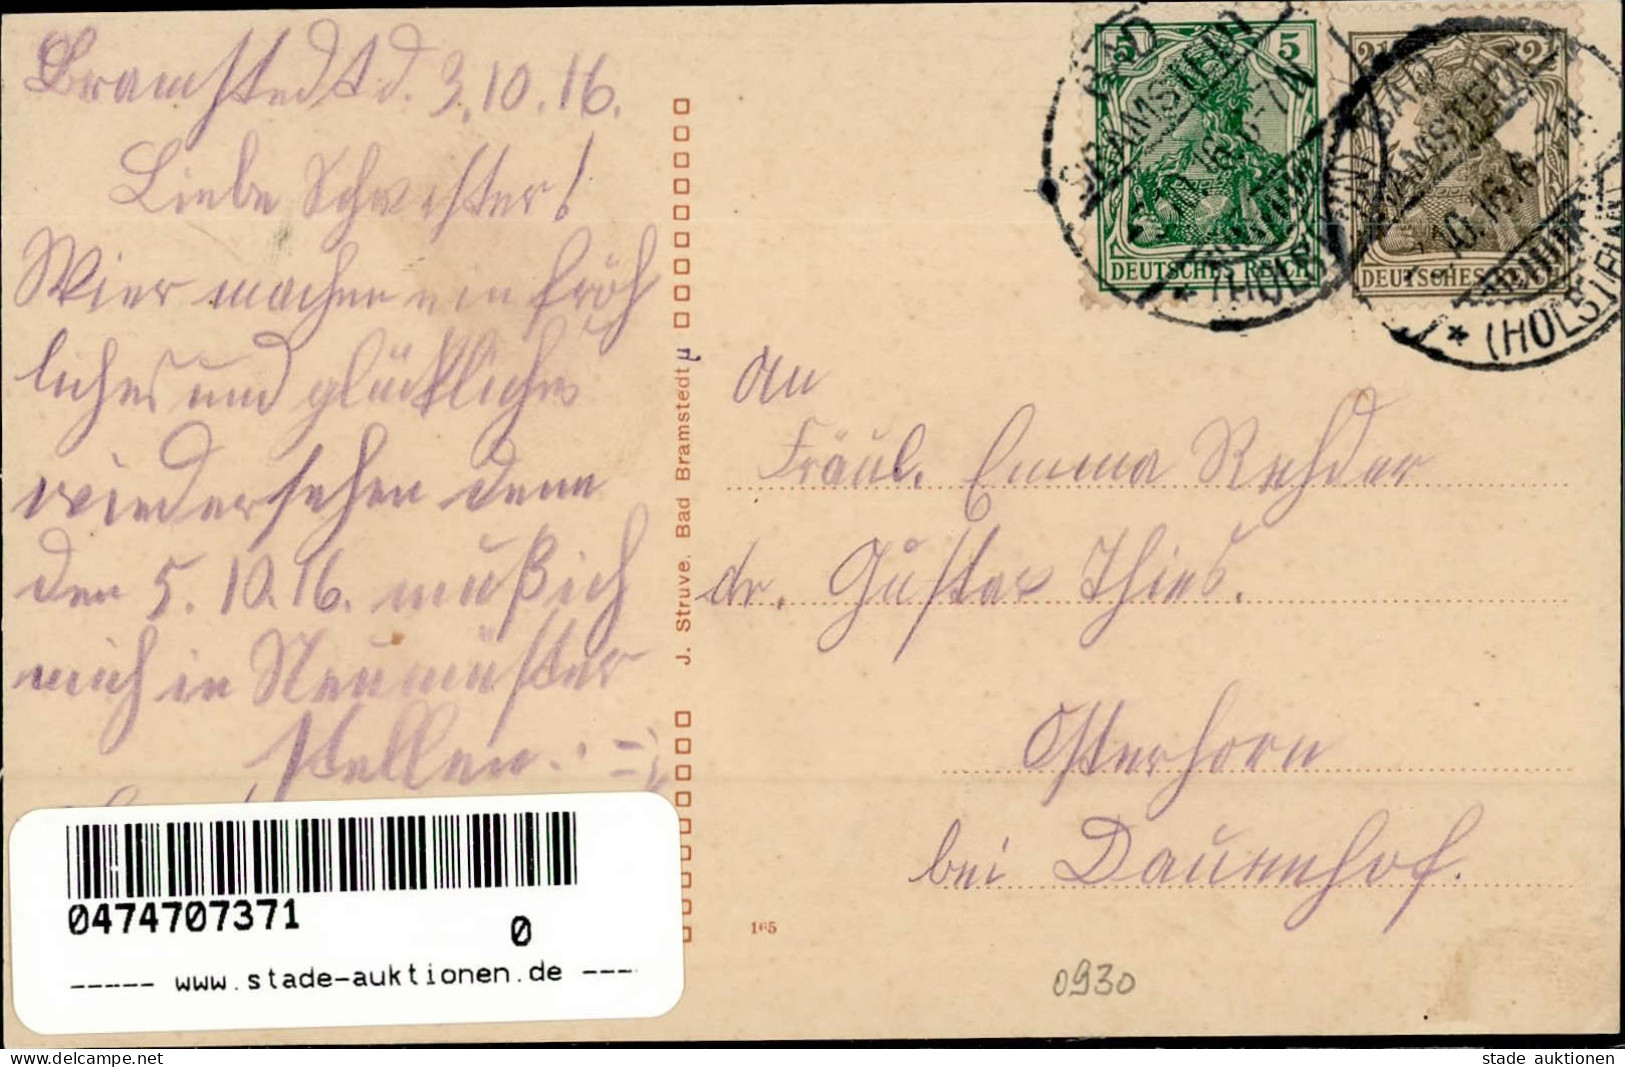 Bramstedt d. 3.10.16.
Liebe Schwester!
Wier machen ein fröh
liches und glückliches
wiedersehen denn
den 5.10.16. muß ich
mich in Neumünster
stellen.
J. Struve. Bad Bramstedt
5 5
DEUTSCHES REICH
2½ 2½
DEUTSCHES REICH
BAD
BRAMSTEDT
* (HOLSTEIN)
BAD
BRAMSTEDT
* (HOLSTEIN)
An
Fräul. Emma Rehder
dr. Gustav Thies.
Osterhorn
bei Dauenhof.
165
0930
0474707371
0
----- www.stade-auktionen.de ----
www.delcampe.net
stade_auktionen